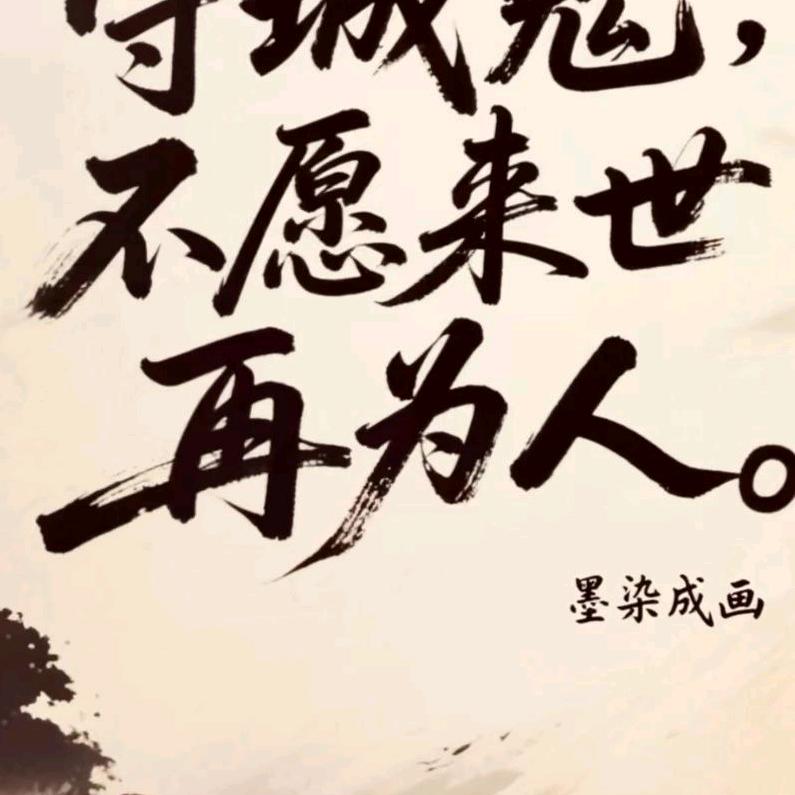 守城鬼，
不愿来世
再为人。
墨染成画